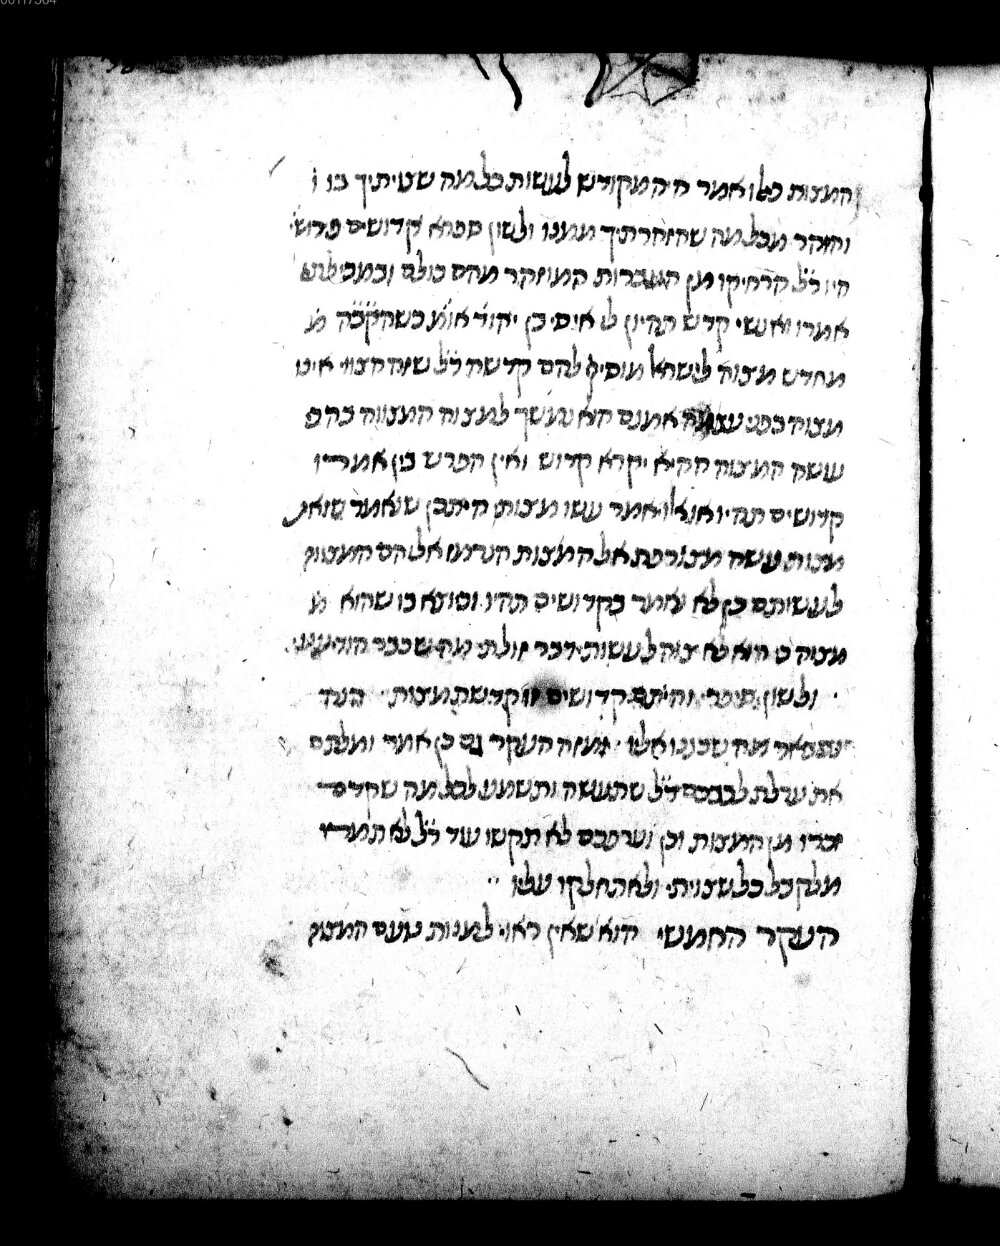 המצות כאלו אמר היה מקודש לעשות כל מה שצויתיך בו ו
והזהר מכל מה שהזהרתיך ממנו ולשון ספרא קדושים תהיו פרושי
היו ר״ל התרחיקו מן העבירות המוזהר מהם כולם ובמכילתא
אמרו ואנשי קדש תהיון לי איסי בן יהודה אומ׳ כשהקב״ה מ
מחדש מצוה לישראל מוסיף להם קדושה ר״ל שזה הצווי אינו
מצוה בפני עצמה אמנם הוא נמשך למצוה המצווה בה מ
עושה המצוה ההיא יקרא קדוש ואין הפרש בין אמרו
קדושים תהיו או אילו אמר עשו מצותי היתכן שיאמר שזאת
מצות עשה מצורפת אל המצות הנרמז אליהם המצווה
לעשותם כן לא יאמר בקדושים תהיו וכיוצא בו שהוא מ
מצוה כי הוא לא צוה לעשות דבר זולתי מה שכבר הודיענו
ולשון סיפרי והייתם קדושים זו קדשת מצות הנה
נתבאר מה שכוננו אליו ומזה העקר גם כן אמר ומלתם
את ערלת לבבכם ר״ל שתעשה ותשמע לכל מה שקדם
זכרו מן המצות וכן וערפכם לא תקשו עוד ר״ל לא תמרו
מלקבל כל שצויתי ולא תחלקו עליו
העקר החמשי הוא שאין ראוי למנות טעם המצוה